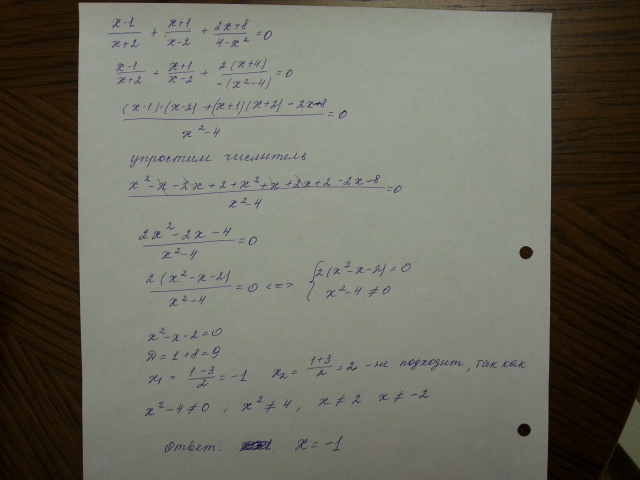 (x-1)/(x+2) + (x+1)/(x-2) + (2x+8)/(4-x²) = 0
(x-1)/(x+2) + (x+1)/(x-2) + 2(x+4)/(-(x²-4)) = 0
((x-1)·(x-2) + (x+1)(x+2) - 2x-8)/(x²-4) = 0
упростим числитель
(x²-x-2x+2+x²+x+2x+2-2x-8)/(x²-4) = 0
(2x²-2x-4)/(x²-4) = 0
2(x²-x-2)/(x²-4) = 0 <=> { 2(x²-x-2) = 0
x²-4 ≠ 0
x²-x-2=0
Д = 1+8 = 9
x₁ = (1-3)/2 = -1 x₂ = (1+3)/2 = 2 - не подходит, так как
x²-4≠0 ; x²≠4 ; x≠2 x≠-2
ответ: x = -1